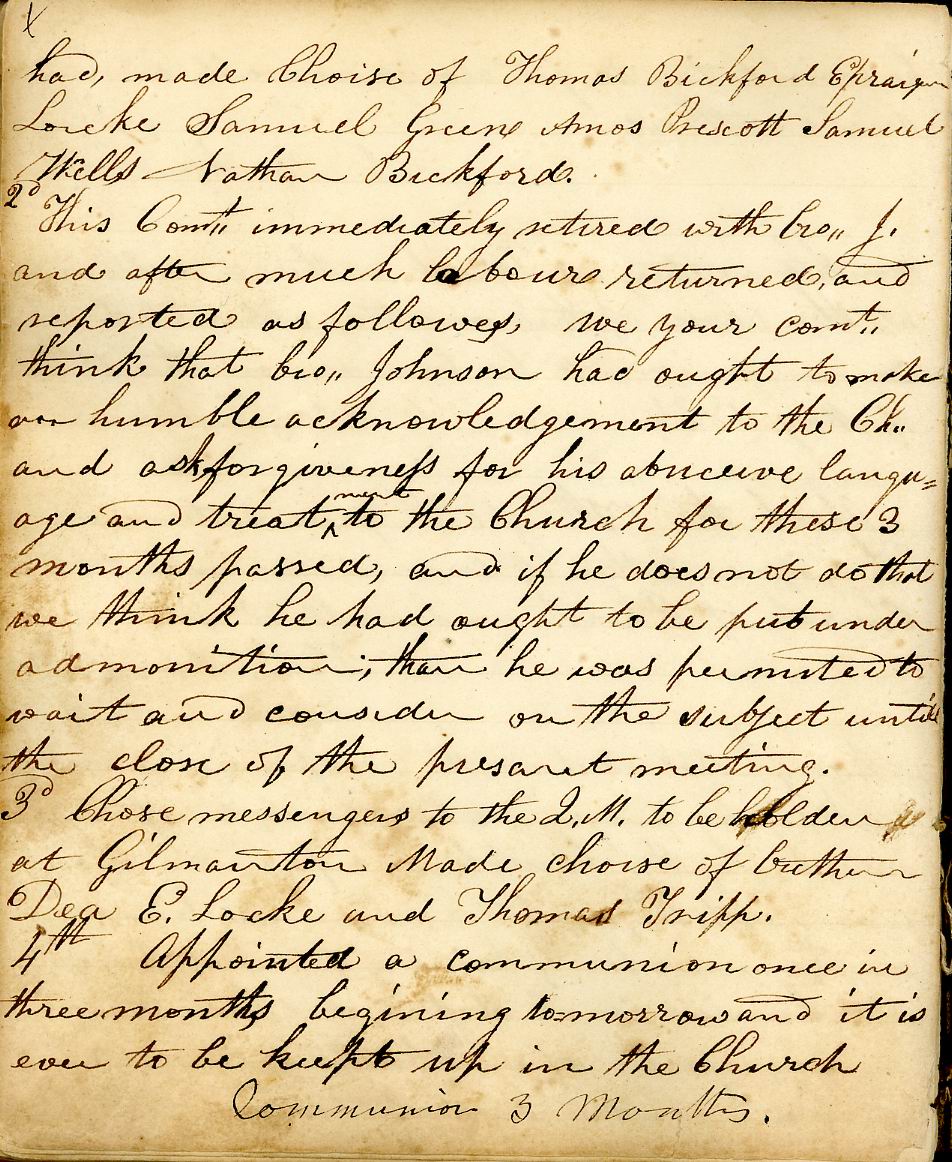 had, made Choise of Thomas Bickford Epraigm
Locke Samuel Greene Amos Prescott Samuel
Wells Nathan Bickford.
2d This Comtt,, immediately retired with bro,, J.
and after much labour returned, and
reported as followes, we your comt,,
think that bro,, Johnson had ought to make
an humble acknowledgement to the Ch,,
and ask forgiveness for his abuceive langu=
age and treat^ment to the Church for these 3
months passed, and if he does not do that
we think he had ought to be put under
admonition; than he was permited to
wait and consider on the subject until
the close of the presant meeting.
3d Chose messengers to the Q.M. to be holden
at Gilmanton Made choise of brethren
Dea E. Locke and Thomas Tripp.
4th Appointed a communion once in
three months begining tomorrow and it is
ever to be keept up in the Church
Communion 3 Months.